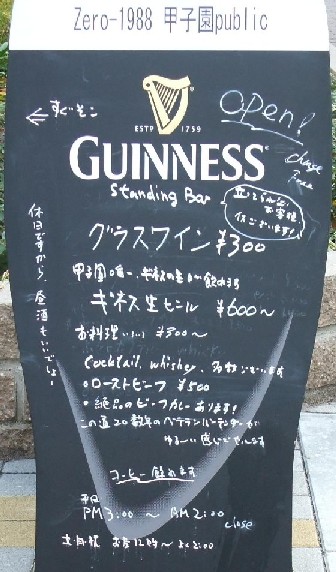 Zero-1988 甲子園public
← すぐそこ
OPEN!
ESTD 1759
GUINNESS
Standing Bar
グラスワイン ¥300
休日ですから、昼酒もいいでしょ
甲子園唯一、ギネスの生が飲めます
ギネス生ビール ¥600〜
お料理いろいろ ¥300〜
Cocktail, whiskey, 多数ございます
・ローストビーフ ¥500
・絶品のビーフカレーあります!
この道20数年のベテランバーテンダーが
ゆる〜い感じでやってます
コーヒー飲めます
平日
PM 3:00 〜 AM 2:00
close
土日祝 お昼12時〜よる2:00